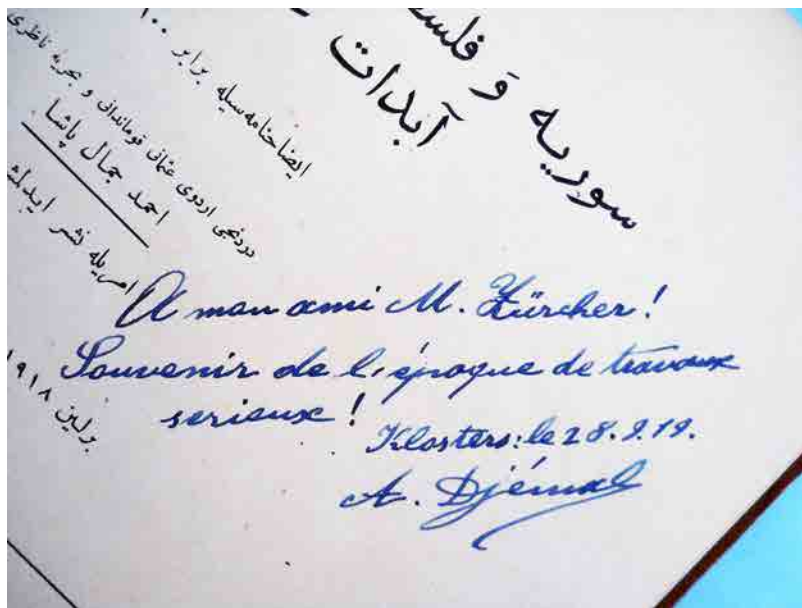 سوریه وَ فلسـ
آبدات
ایضاحنامه سیله برابر ١٠٠
دردنجی اردوی عثمانی قوماندانی و بحریه ناظری
احمد جمال پاشا
امریله نشر
A mon ami M. Zürcher!
Souvenir de l'époque de travaux
serieux!
Klosters: le 28.9.19.
A. Djémal
برلین ١٩١٨